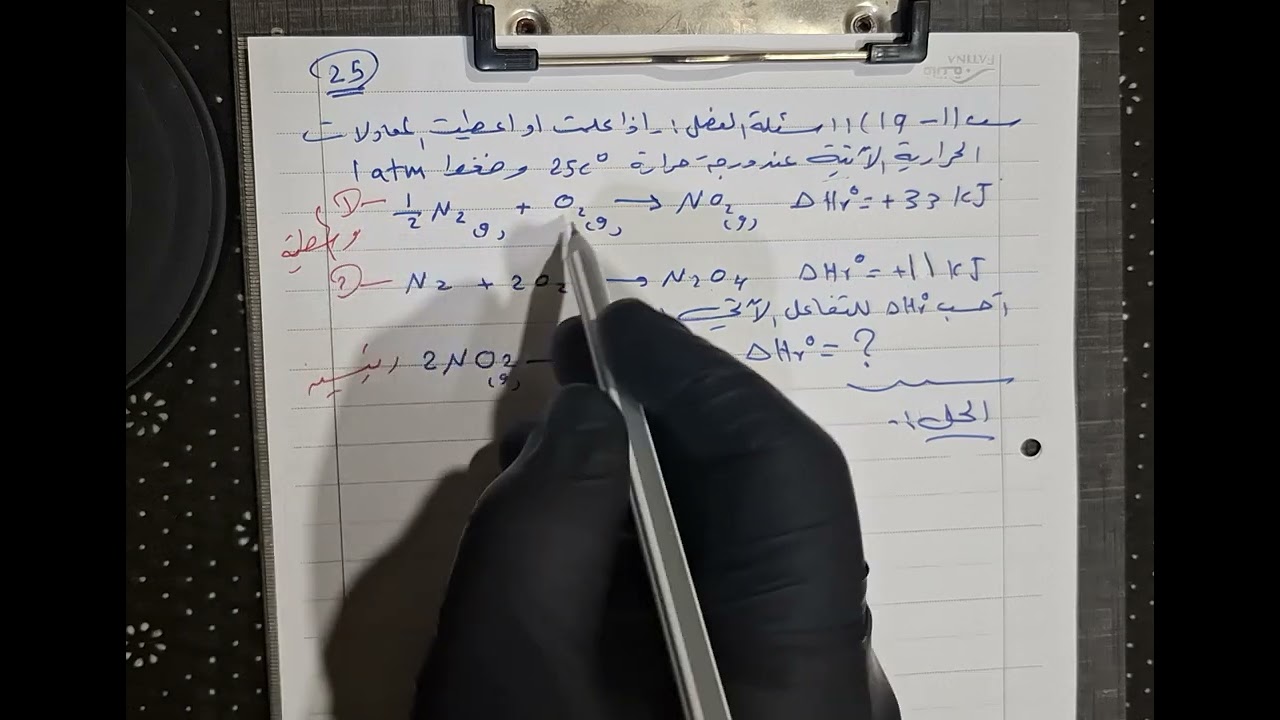 25
FATINA
س (19-1) اسئلة الفصل :- اذا علمت او اعطيت المعادلات
الحرارية الآتية عند درجة حرارة 25c° وضغط 1 atm
1- 1/2 N2(g) + O2(g) → NO2(g) ΔHr° = +33 kJ
2- N2 + 2O2 → N2O4 ΔHr° = +11 kJ
احسب ΔHr° للتفاعل الآتي
2NO2(g) ΔHr° = ?
الحل :-